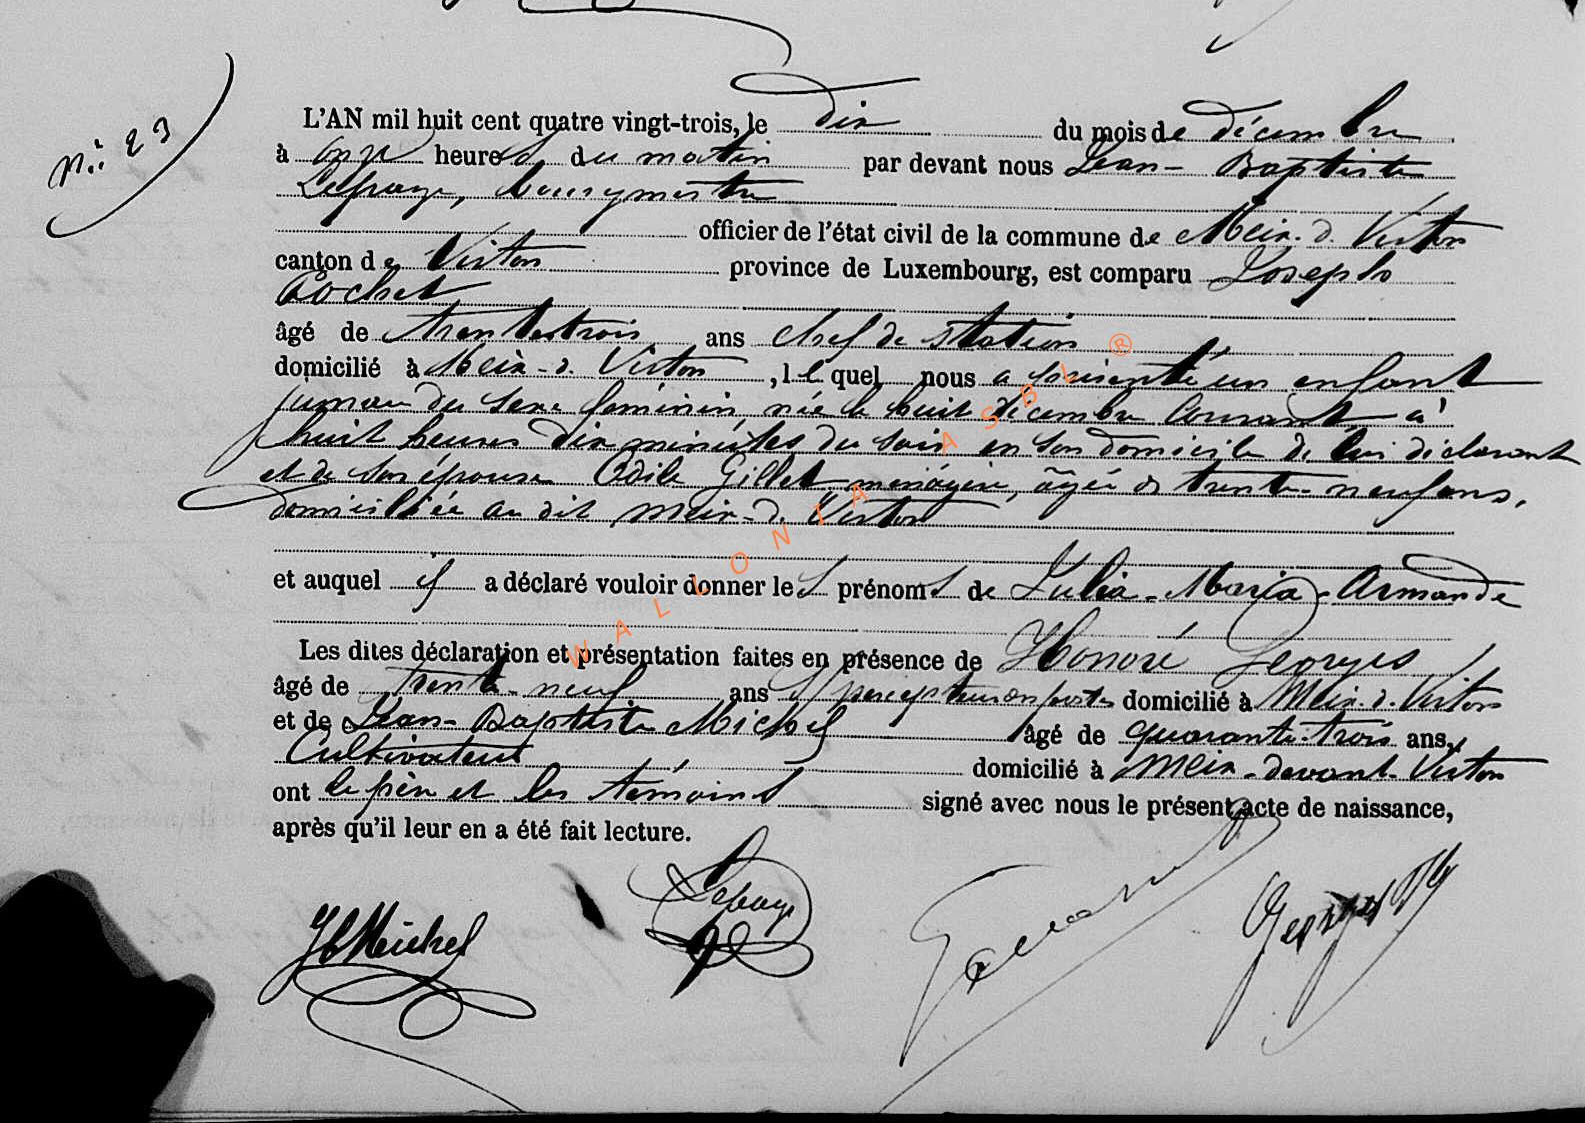 N.º 23
L'AN mil huit cent quatre vingt-trois, le dix du mois de décembre
à onze heures du matin par devant nous Jean-Baptiste
Lepage, bourgmestre
officier de l'état civil de la commune de Meix-d. Virton
canton de Virton province de Luxembourg, est comparu Joseph
Cochet
âgé de trente-trois ans chef de station
domicilié à Meix-d. Virton, lequel nous a présenté un enfant
jumeau du sexe féminin née le huit décembre courant à
huit heures dix minutes du soir en son domicile de lui déclarant
et de son épouse Odile Gillet ménagère, âgée de trente-neuf ans,
domiciliée au dit Meix-d. Virton
et auquel il a déclaré vouloir donner les prénoms de Julia-Maria-Armande
Les dites déclaration et présentation faites en présence de Honoré Georges
âgé de trente-neuf ans percepteur en postes domicilié à Meix-d. Virton
et de Jean-Baptiste Michel âgé de quarante-trois ans,
Cultivateur domicilié à Meix-devant-Virton
ont le père et les témoins signé avec nous le présent acte de naissance,
après qu'il leur en a été fait lecture.
JB Michel Lepage Georges
WALLONIA ASBL ®